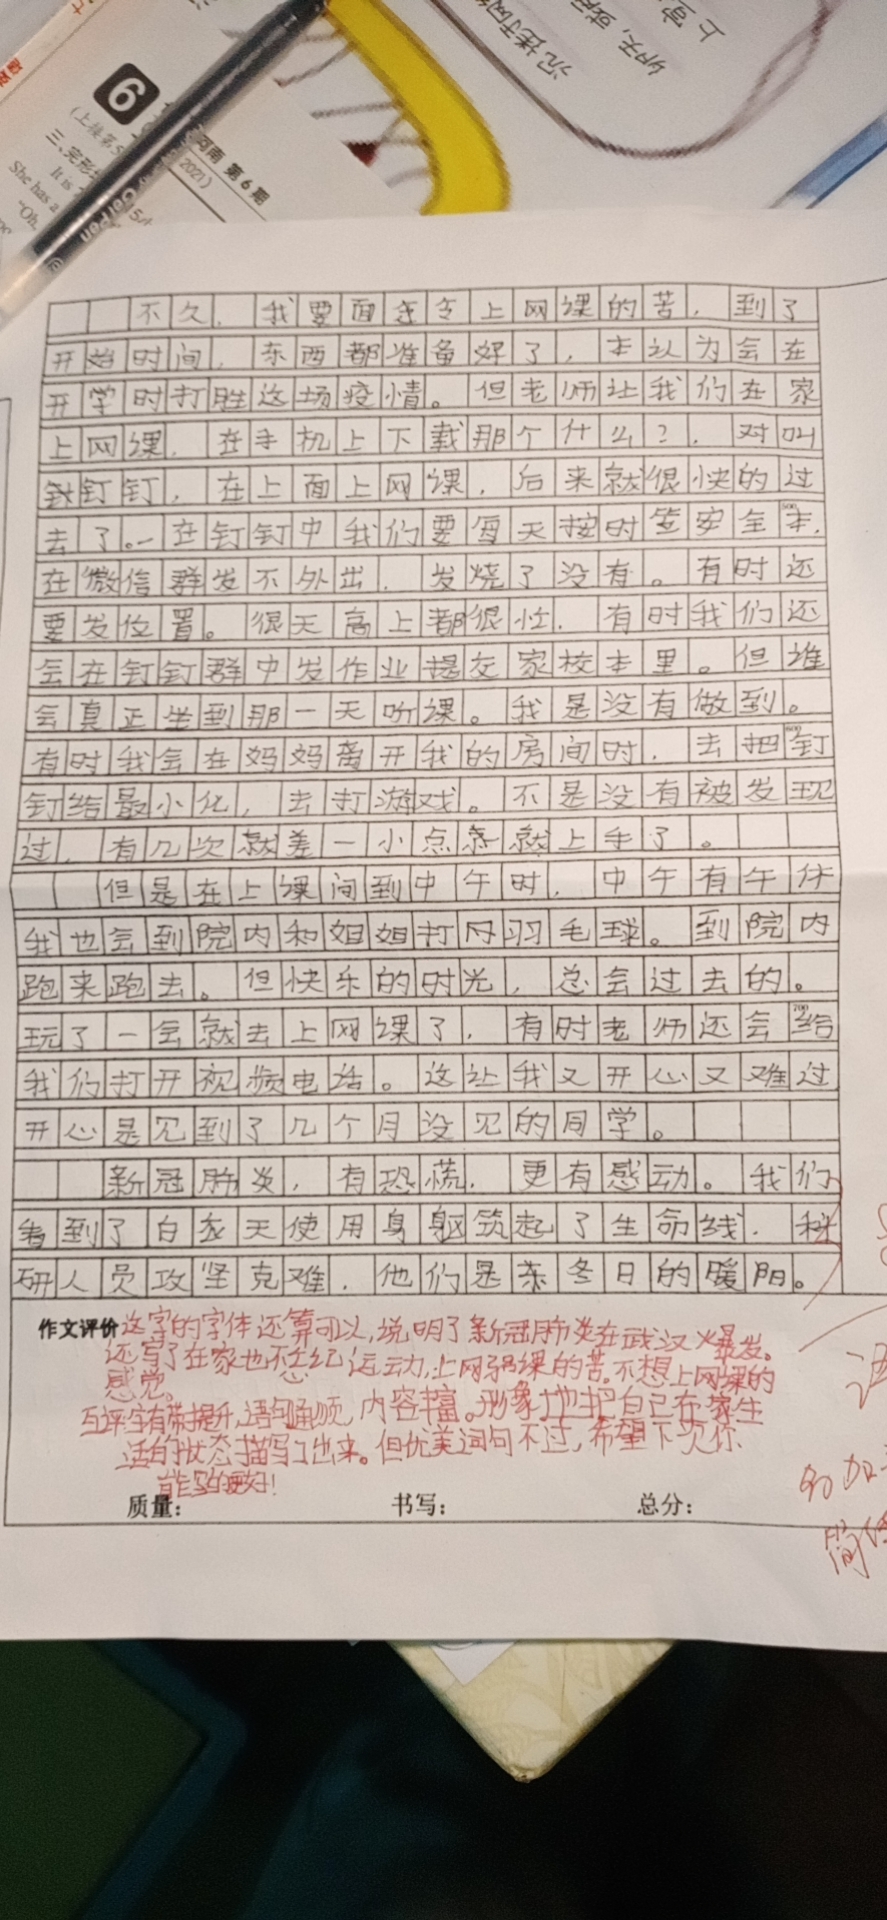 6
河南 第6期
2021)
(上接第5
三、完形
It is
She has a
"Oh,
不久，我要面连令上网课的苦，到了
开始时间，东西都准备好了，本认为会在
开学时打胜这场疫情。但老师让我们在家
上网课，在手机上下载那个什么？，对叫
钉钉，在上面上网课，后来就很快的过
去了。一在钉钉中我们要每天按时签安全本，
在微信群发不外出，发烧了没有。有时还
要发位置。很天高上都很忙，有时我们还
会在钉钉群中发作业提交家校本里。但谁
会真正坐到那一天听课。我是没有做到。
有时我会在妈妈离开我的房间时，去把钉
钉给最小化，去打游戏。不是没有被发现
过，有几次就差一小点条就上手了。
但是在上课间到中午时，中午有午休
我也会到院内和姐姐打丹羽毛球。到院内
跑来跑去。但快乐的时光，总会过去的。
玩了一会就去上网课了，有时老师还会给
我们打开视频电话。这让我又开心又难过
开心是见到了几个月没见的同学。
新冠肺炎，有恐慌，更有感动。我们
看到了白衣天使用身躯筑起了生命线，科
研人员攻坚克难，他们是东冬日的暖阳。
作文评价这字的字体还算可以，说明了新冠肺炎在武汉爆发。
还写了在家也不忘纪运动，上网课的苦。不想上网课的
感觉。
互评：字有带提升，语句通顺，内容丰富。形象地把自己在家生
活的状态描写了出来。但优美词句不过，希望下次你
能写的更好！
质量： 书写： 总分：